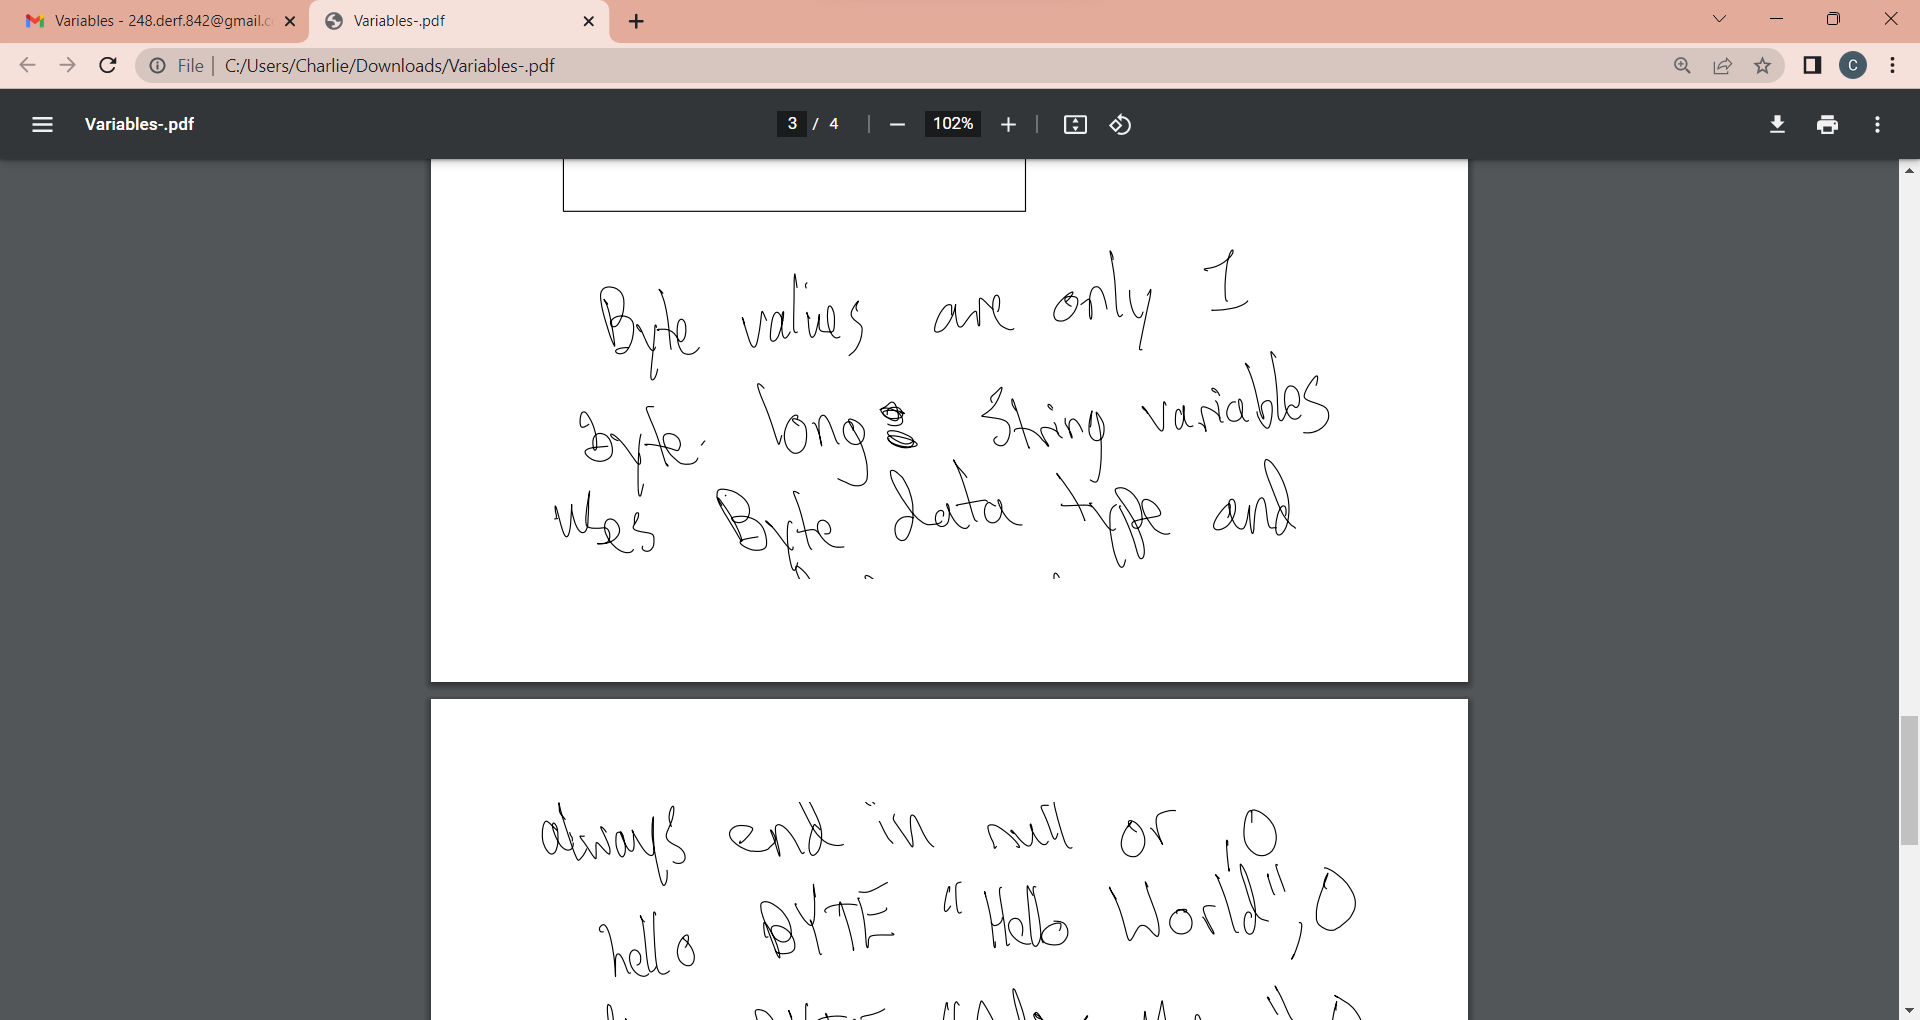 Variables - 248.derf.842@gmail.c
Variables-.pdf
File | C:/Users/Charlie/Downloads/Variables-.pdf
C
Variables-.pdf
3 / 4
102%
Byte values are only 1
byte. long. String variables
uses Byte data type and
always end in null or ,0
hello BYTE "Hello World",0